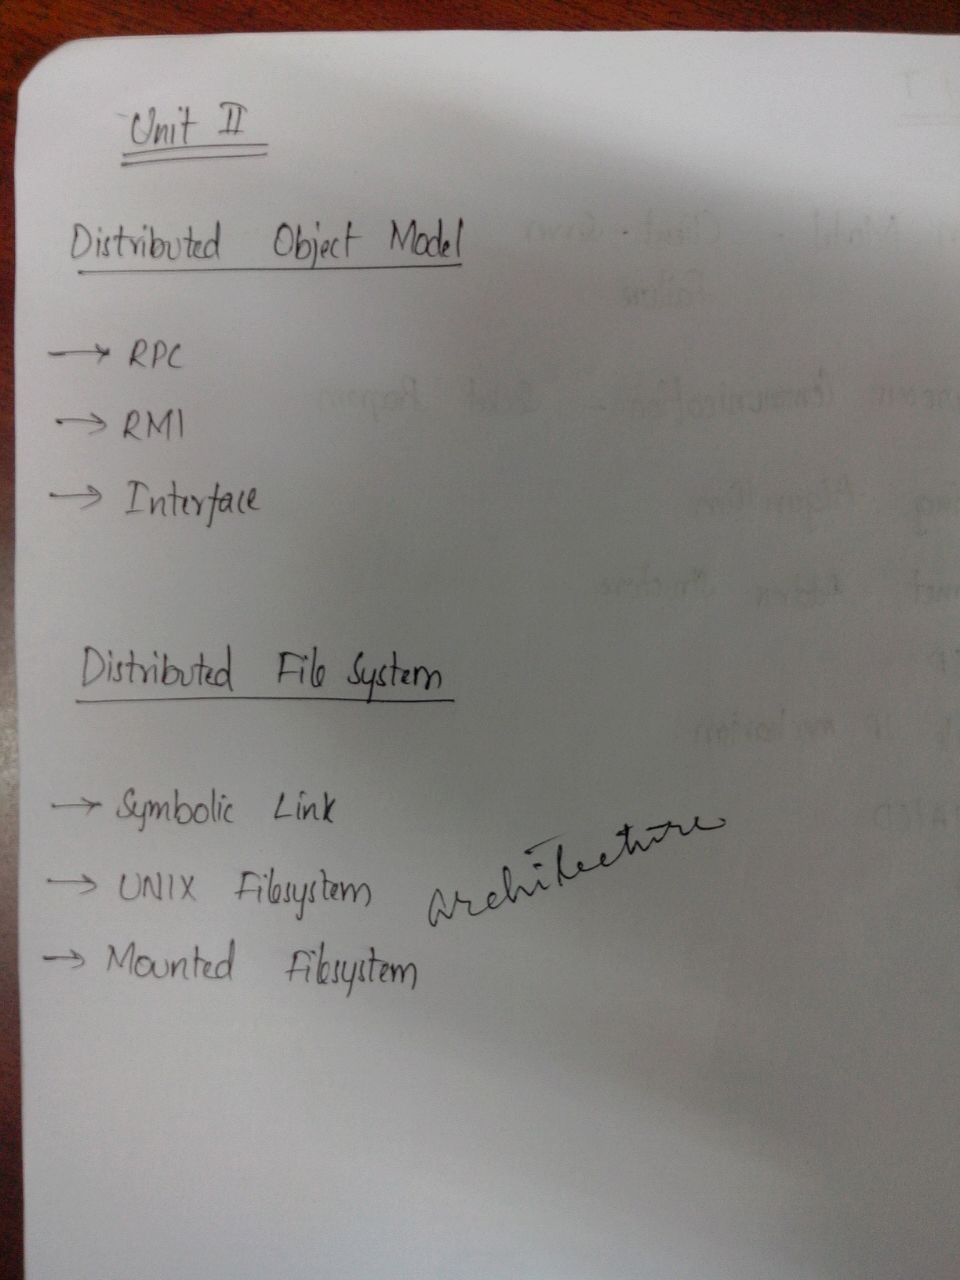 Unit II
Distributed Object Model
→ RPC
→ RMI
→ Interface
Distributed File System
→ Symbolic Link
→ UNIX Filesystem architecture
→ Mounted Filesystem